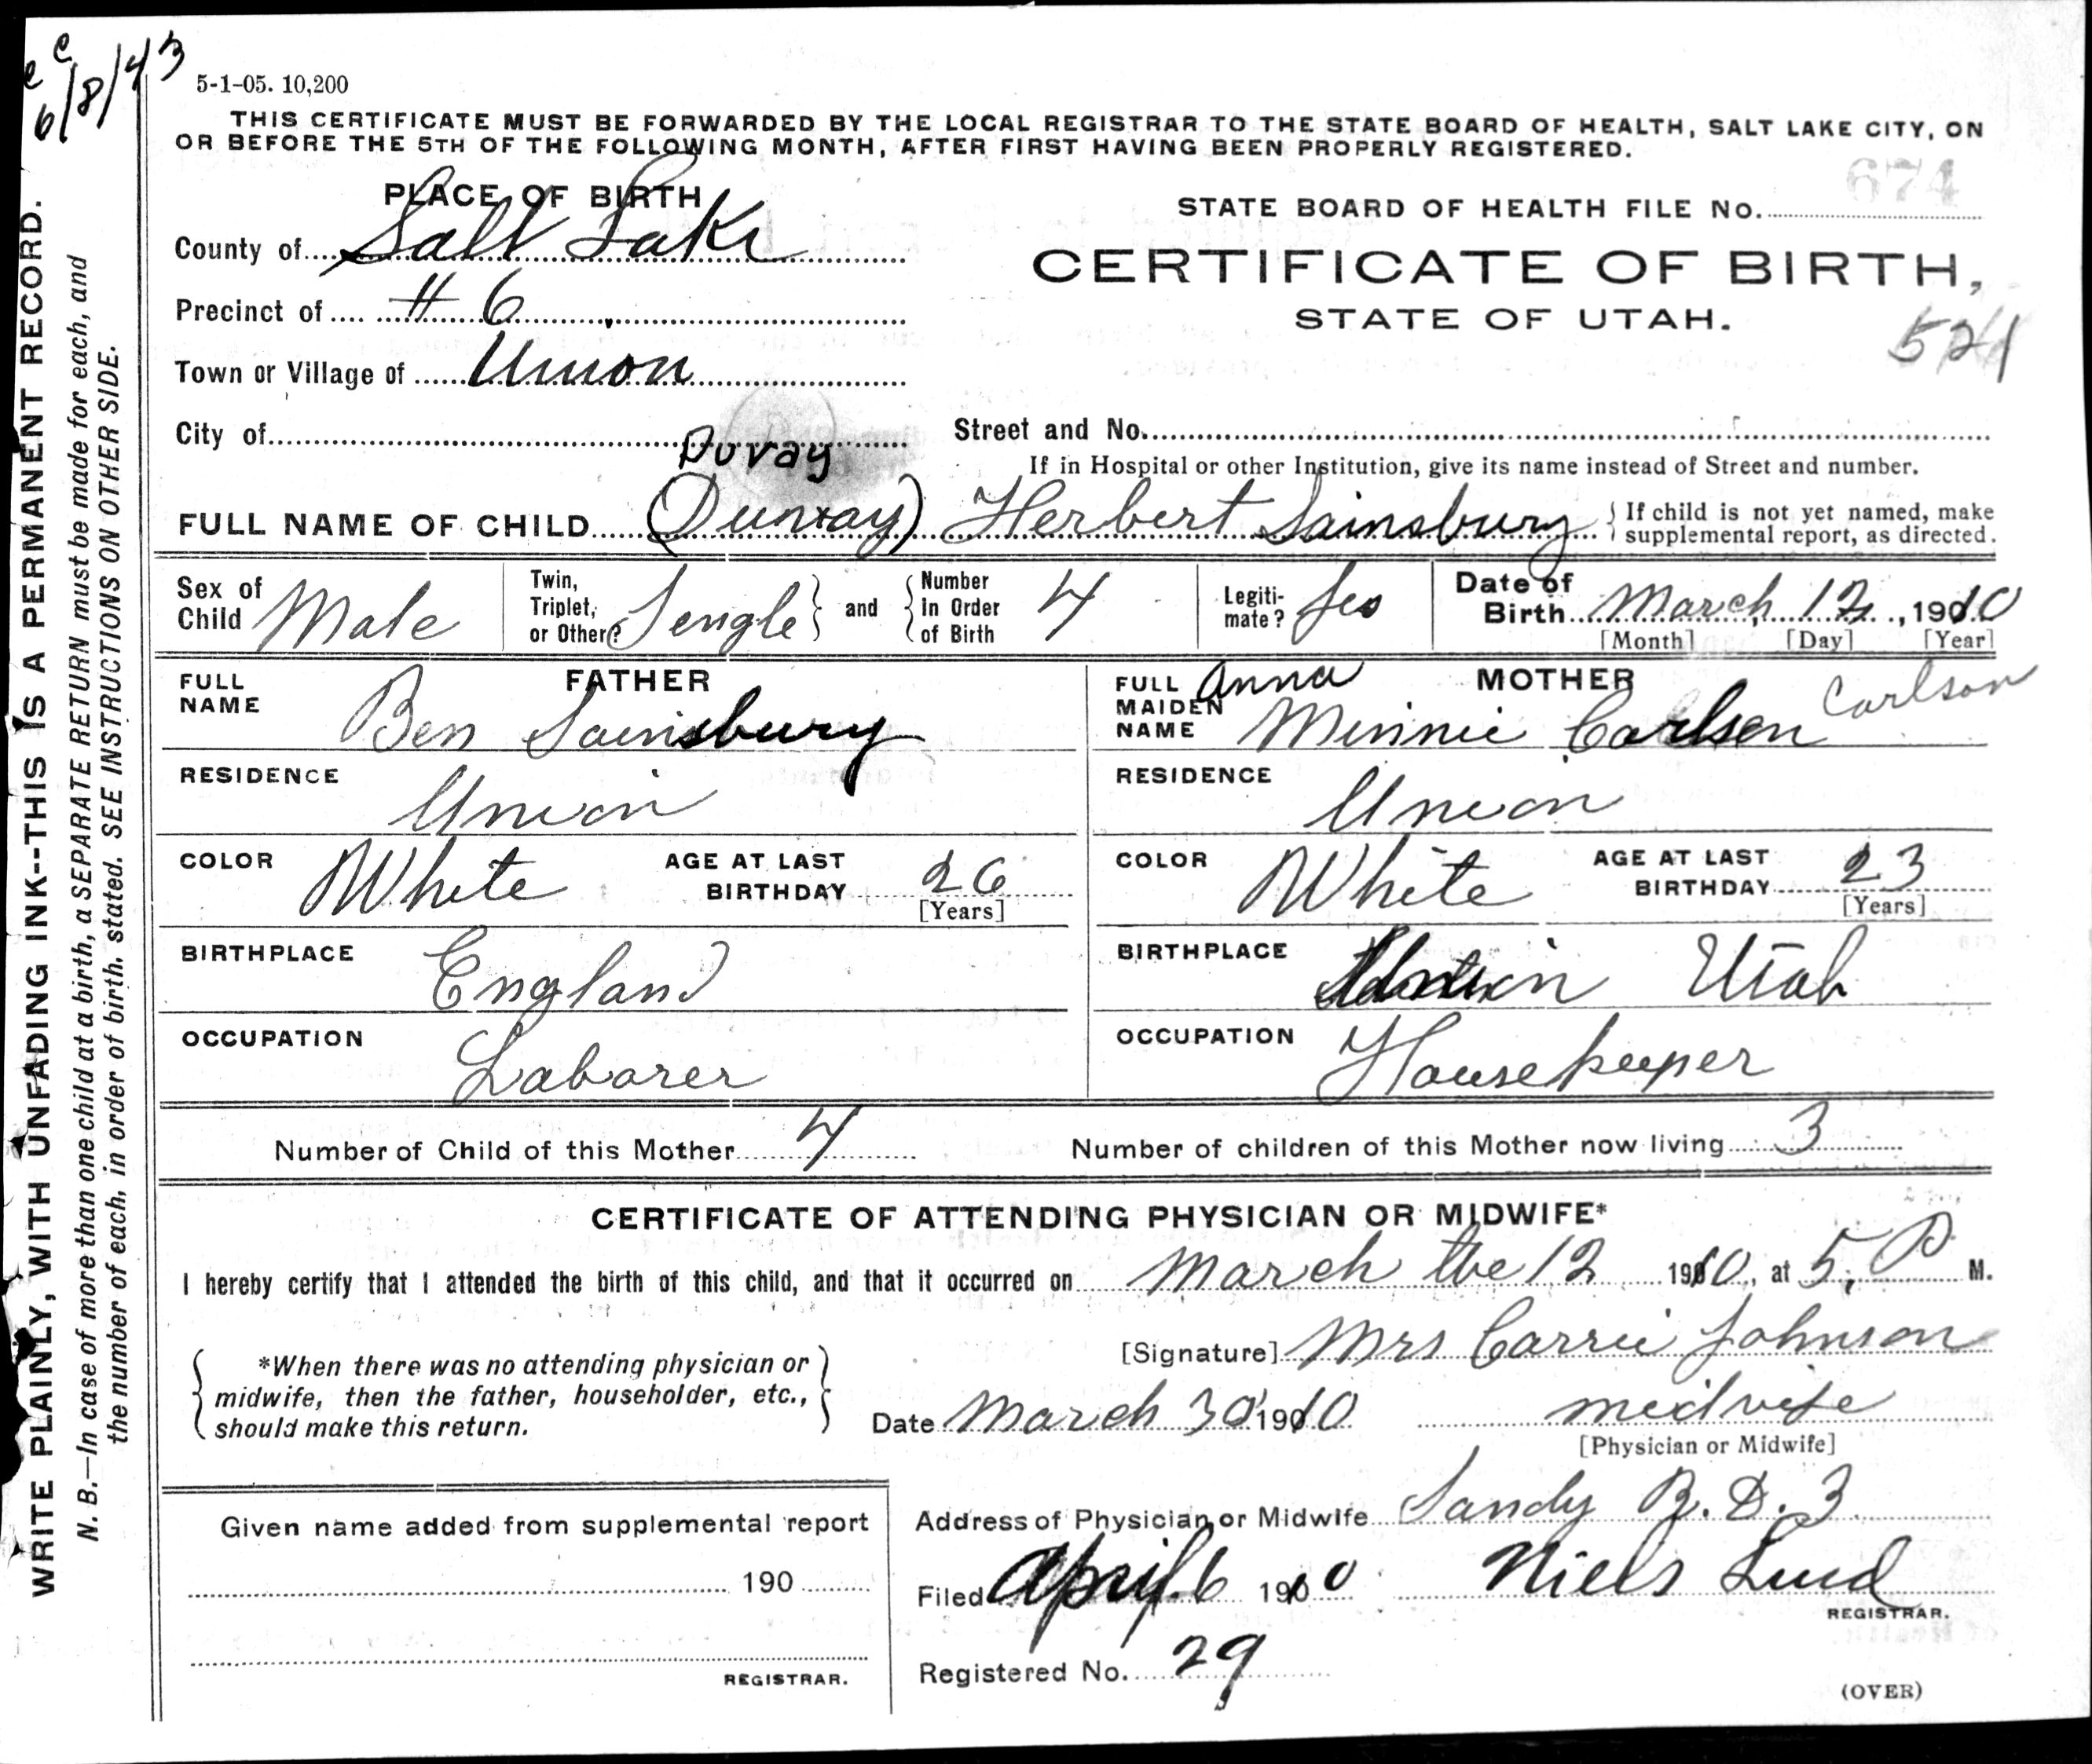 c c
6/8/43
5-1-05. 10,200
THIS CERTIFICATE MUST BE FORWARDED BY THE LOCAL REGISTRAR TO THE STATE BOARD OF HEALTH, SALT LAKE CITY, ON
OR BEFORE THE 5TH OF THE FOLLOWING MONTH, AFTER FIRST HAVING BEEN PROPERLY REGISTERED.
WRITE PLAINLY, WITH UNFADING INK--THIS IS A PERMANENT RECORD.
N. B.—In case of more than one child at a birth, a SEPARATE RETURN must be made for each, and
the number of each, in order of birth, stated. SEE INSTRUCTIONS ON OTHER SIDE.
PLACE OF BIRTH
County of Salt Lake
Precinct of # 6
Town or Village of Union
City of
STATE BOARD OF HEALTH FILE No. 674
CERTIFICATE OF BIRTH,
STATE OF UTAH.
521
Street and No.
If in Hospital or other Institution, give its name instead of Street and number.
Duray
FULL NAME OF CHILD (Dunray) Herbert Sainsbury { If child is not yet named, make
supplemental report, as directed.
Sex of Child Male
Twin, Triplet, or Other? Sengle } and { Number in Order of Birth 4
Legiti-mate? Yes
Date of Birth March, 12, 1910
[Month] [Day] [Year]
FATHER
FULL NAME Ben Sainsbury
RESIDENCE Union
COLOR White AGE AT LAST BIRTHDAY 26
[Years]
BIRTHPLACE England
OCCUPATION Laborer
MOTHER
FULL MAIDEN NAME Anna Minnie Carlsen Carlson
RESIDENCE Union
COLOR White AGE AT LAST BIRTHDAY 23
[Years]
BIRTHPLACE Utah
OCCUPATION Housekeeper
Number of Child of this Mother 4 Number of children of this Mother now living 3
CERTIFICATE OF ATTENDING PHYSICIAN OR MIDWIFE*
I hereby certify that I attended the birth of this child, and that it occurred on March the 12 1910, at 5, P M.
{ *When there was no attending physician or
midwife, then the father, householder, etc.,
should make this return. }
[Signature] Mrs Carrie Johnson
Date March 30 1910 midvife
[Physician or Midwife]
Given name added from supplemental report
190
REGISTRAR.
Address of Physician or Midwife Sandy R. D. 3
Filed April 6 1910 Niels Lind
REGISTRAR.
Registered No. 29
(OVER)